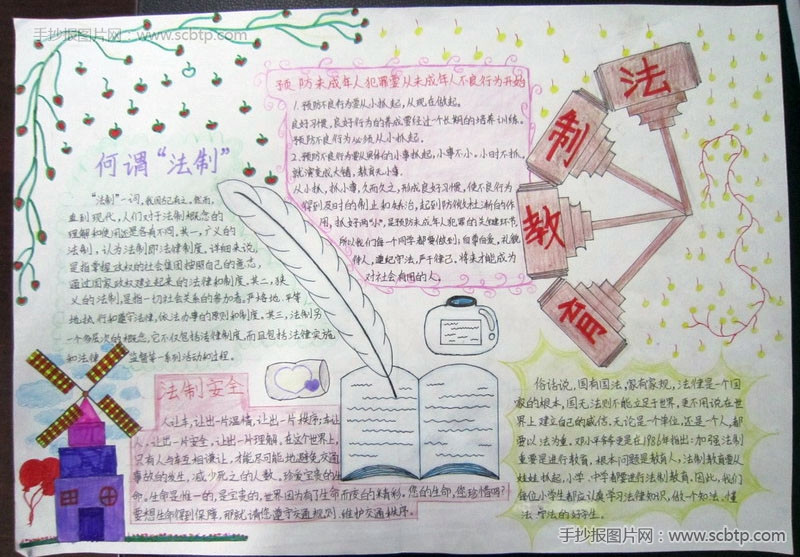 手抄报图片网：www.scbtp.com
法
制
教
育
预防未成年人犯罪要从未成年人不良行为开始
1. 预防不良行为要从小抓起，从现在做起。
良好习惯，良好行为的养成要经过个长期的培养训练。
预防不良行为必须从小抓起。
2. 预防不良行为要从具体的小事抓起，小事不小。小时不抓，
就演变成大错，教育无小事。
从小抓，抓小事，久而久之，形成良好习惯，使不良行为
得到及时的制止和矫治，起到防微杜渐的作
用，抓好两"小"，是预防未成年人犯罪的关键环节。
所以我们每一个同学都要做到：自尊自爱，礼貌
待人，遵纪守法，严于律己，将来才能成为
对社会有用的人。
何谓“法制”
“法制”一词，我国古已有之。然而，
直到现代，人们对于法制概念的
理解和使用还是各有不同。其一，广义的
法制，认为法制即法律制度。详细来说，
是指掌握政权的社会集团按照自己的意志，
通过国家政权建立起来的法律和制度。其二，狭
义的法制，是指一切社会关系的参加者，严格地、平等
地执行和遵守法律，依法办事的原则和制度。其三，法制另
一个多层次的概念，它不仅包括法律制度，而且包括法律实施
和法律 监督等一系列活动和过程。
法制安全
人让车，让出一片温情，让出一片秩序；车让
人，让出一片安全，让出一片理解，在这个世界上，
只有人与车互相谦让，才能尽可能地避免交通
事故的发生，减少死亡的人数。珍爱宝贵的生
命。生命是惟一的，是宝贵的，世界因为有了生命而变的精彩。您的生命，您珍惜吗？
要想生命得到保障，那就请您遵守交通规则，维护交通秩序。
俗话说，国有国法，家有家规，法律是一个国
家的根本，国无法则不能立足于世界，更不用说在世
界上建立自己的威信。无论是一个学生，还是一个人，都
要以法为重。邓小平爷爷更是在1986年指出：加强法制
重要是进行教育，根本问题是教育人，法制教育要从
娃娃抓起，小学、中学都要进行法制教育。因此，我们
每位小学生都应认真学习法律知识，做个知法、懂
法、守法的好学生。
手抄报图片网：www.scbtp.com